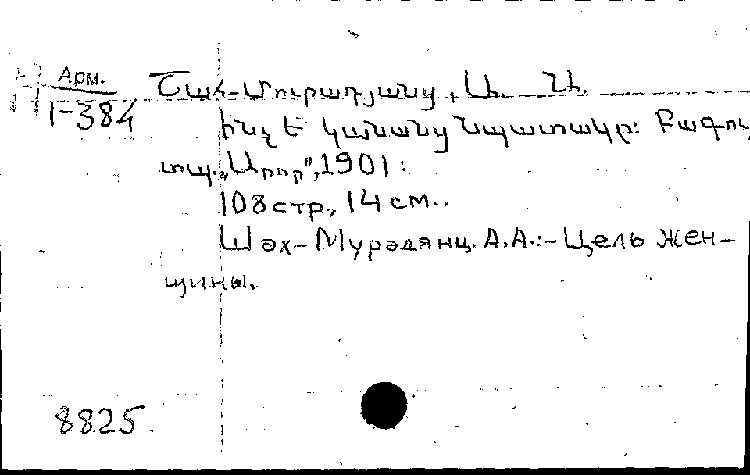 Арм. Շահ-Մուրադյանց, Ա. Ա.
1-384
Ինչ է կանանց նպատակը: Բագու
տպ. „Արոր", 1901:
108 стр., 14 см..
Шах-Мурадянц. А.А.:- Цель жен-
щины.
8825